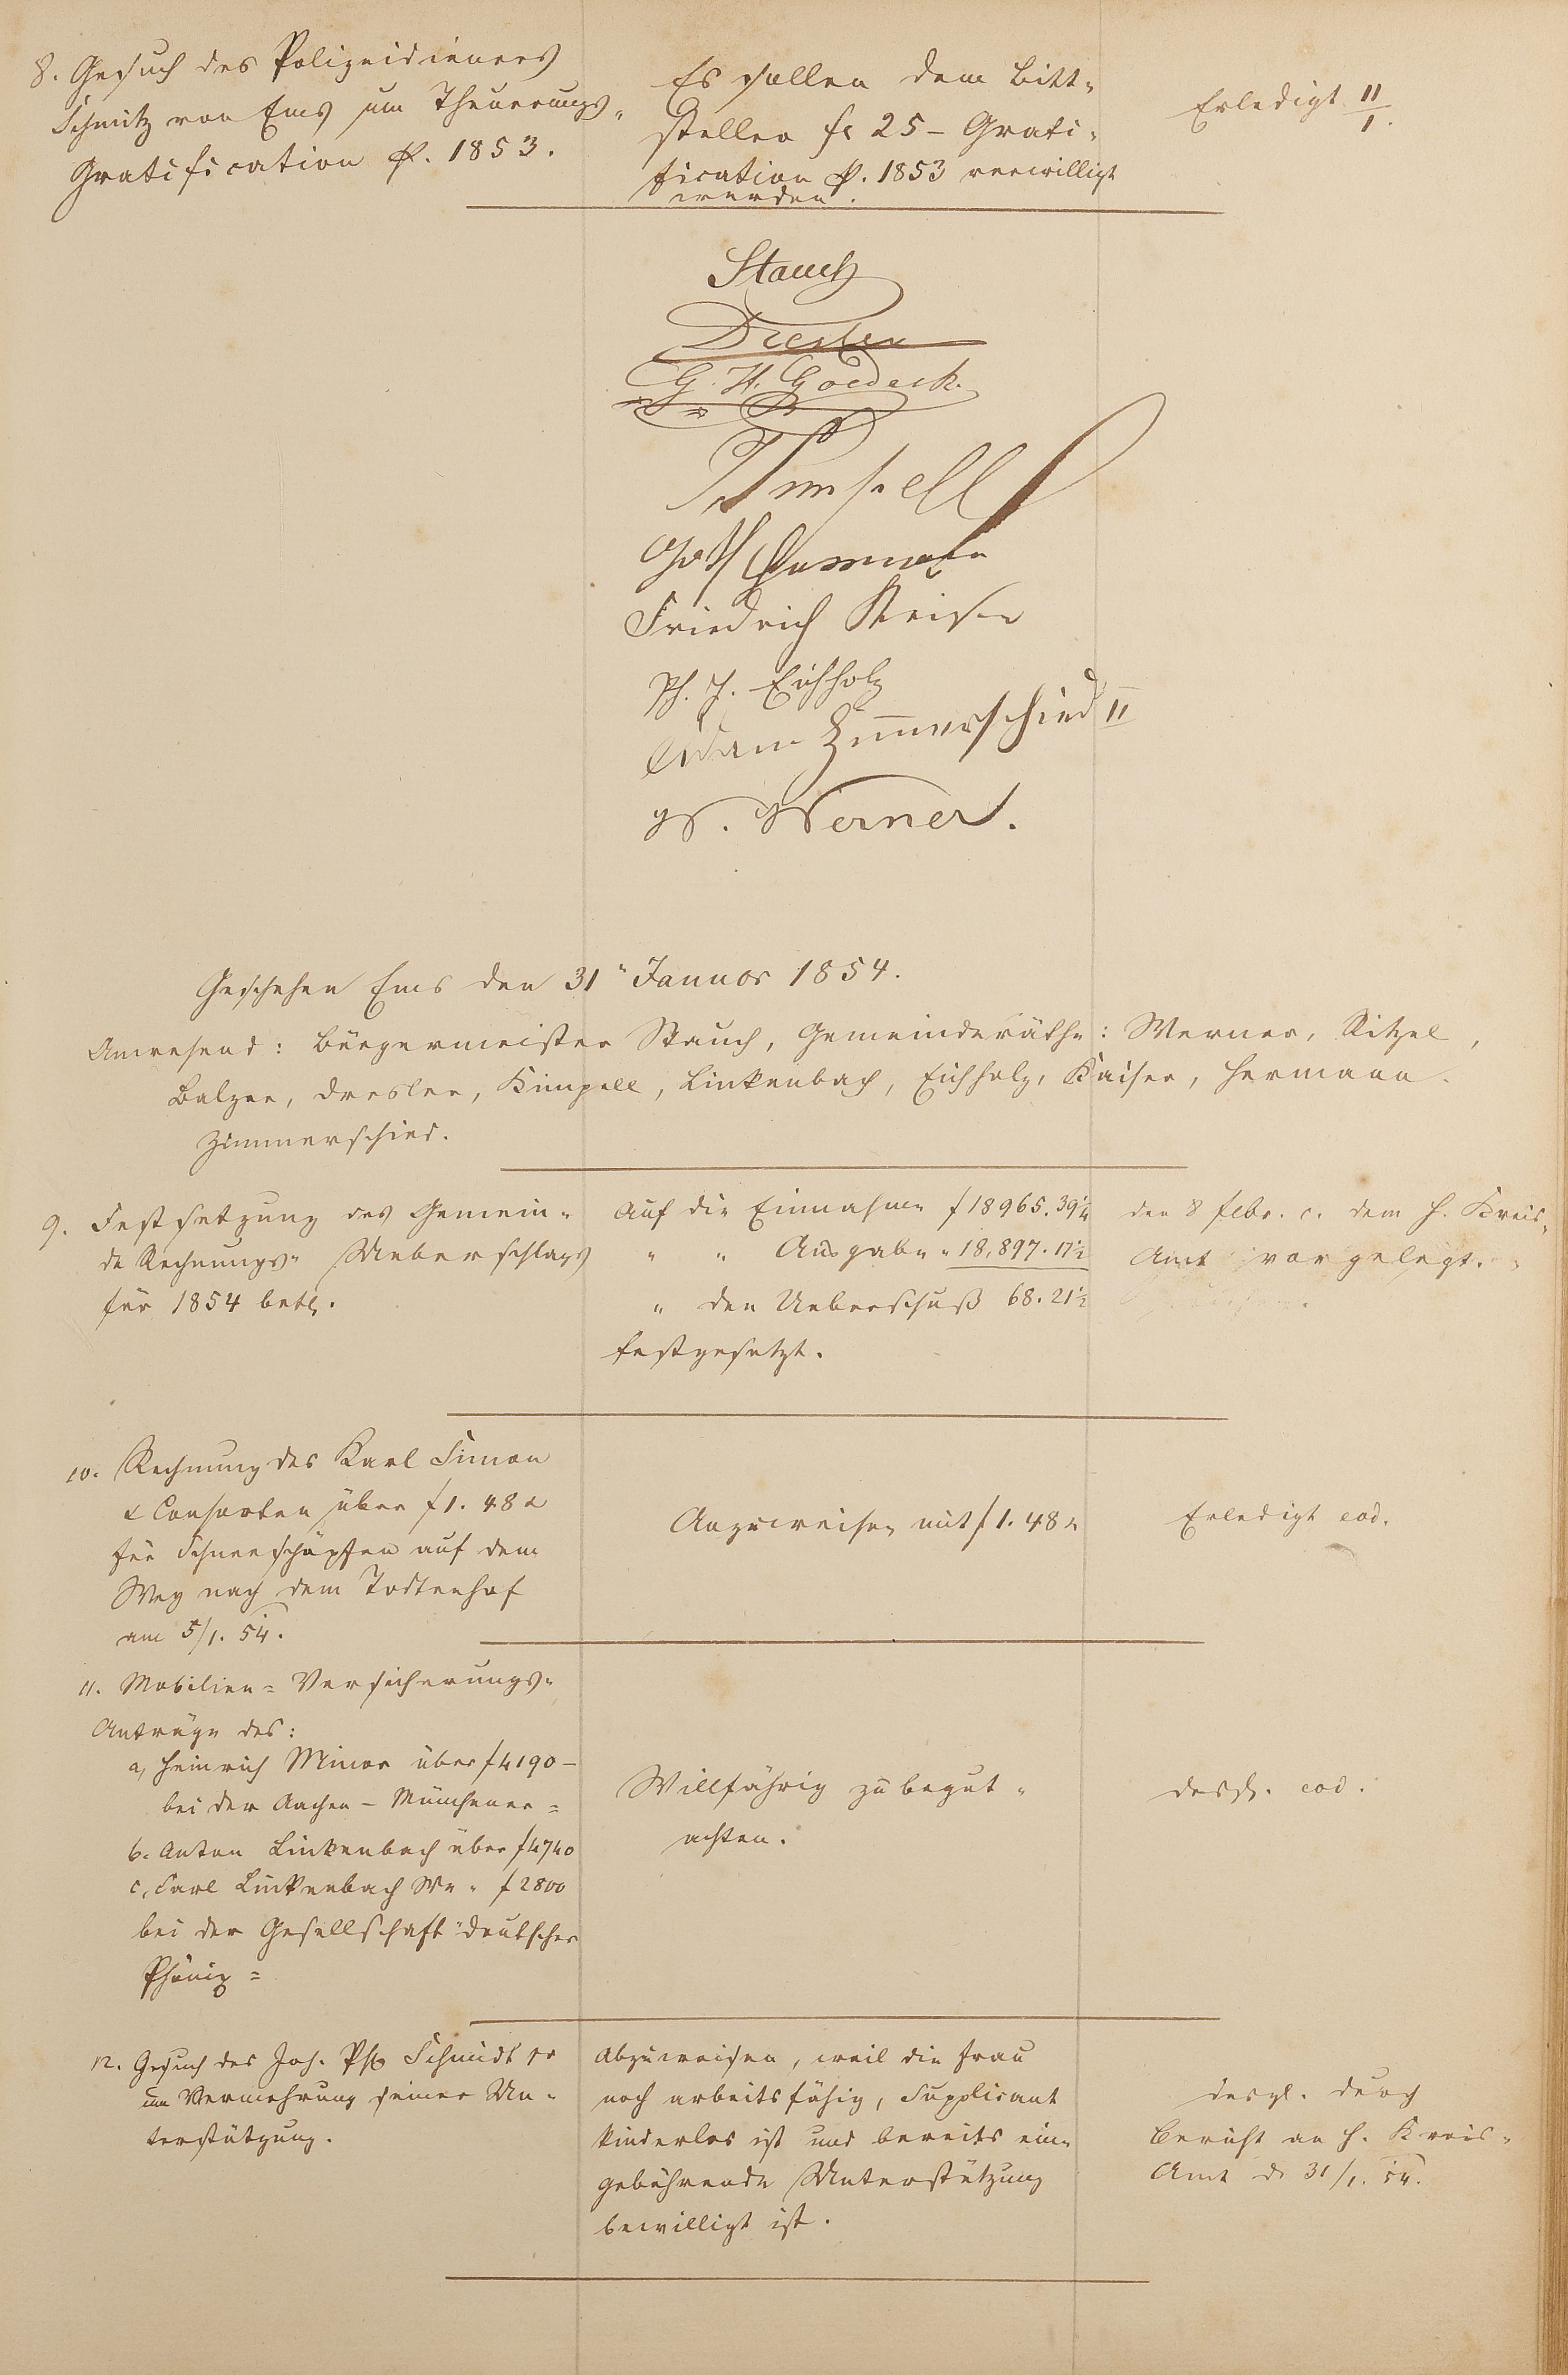 8. Gesuch des Polizeidieners
Schmitz von Ems um Theuerungs-
Gratification p. 1853.
Es sollen dem Bitt-
steller f 25 – Grati-
fication p. 1853 verwilligt
werden.
Erledigt 11/1.
Stauch
Dresler
G. H. Goedeck.
Kimpell
Hermann
Friedrich Keiser
Ph. J. Eichholz
Adam Zimmerschied II
W. Werner.
Geschehen Ems den 31" Januar 1854.
Anwesend: Bürgermeister Stauch, Gemeinderäthe: Werner, Ritzel,
Balzer, Dresler, Kimpell, Linkenbach, Eichholz, Kaiser, Hermann.
Zimmerschied.
9. Festsetzung des Gemein-
de Rechnungs- Ueberschlags
für 1854 betr.
Auf die Einnahme f 18965. 39¼
" " Ausgabe " 18,897. 17½
" den Ueberschuß 68. 21½
festgesetzt.
den 8 febr. c. dem H. Kreis-
Amt vorgelegt.
10. Rechnung des Karl Simon
& Consorten über f 1. 48 x
für Schneeschöpfen auf dem
Weg nach dem Todtenhof
am 5/1. 54.
Anzuweisen mit f 1. 48 x
Erledigt eod.
11. Mobilien= Versicherungs-
Anträge des:
a, Heinrich Minor über f 4190 –
bei der Aachen – Münchener =
b. Anton Linkenbach über f 4740
c, Carl Linkenbach We " f 2800
bei der Gesellschaft "deutscher
Phönix =
Willfährig zu begut-
achten.
desgl. eod.
12. Gesuch des Joh. Phil Schmidt
um Vermehrung seiner Un-
terstützung.
Abzuweisen, weil die Frau
noch arbeitsfähig, Supplicant
kinderlos ist und bereits ein-
gebührende Unterstützung
bewilligt ist.
desgl. durch
Bericht an H. Kreis-
Amt d 31/1. 54.